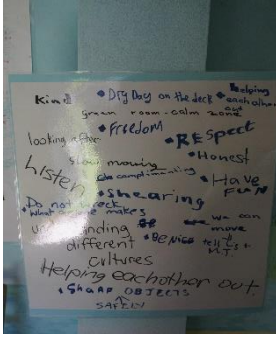 Kind • Dry Day on the deck • helping eachother out
green room - calm zone
looking after • Freedom • REspect
Slow moving • Honest
Listen complimenting • Have FUN
• Shearing
• Do not wreck
• What makes we can move
understanding • Be Nice tell us
different
cultures
Helping eachother out.
• Sharp OBJECTS
SAFELY